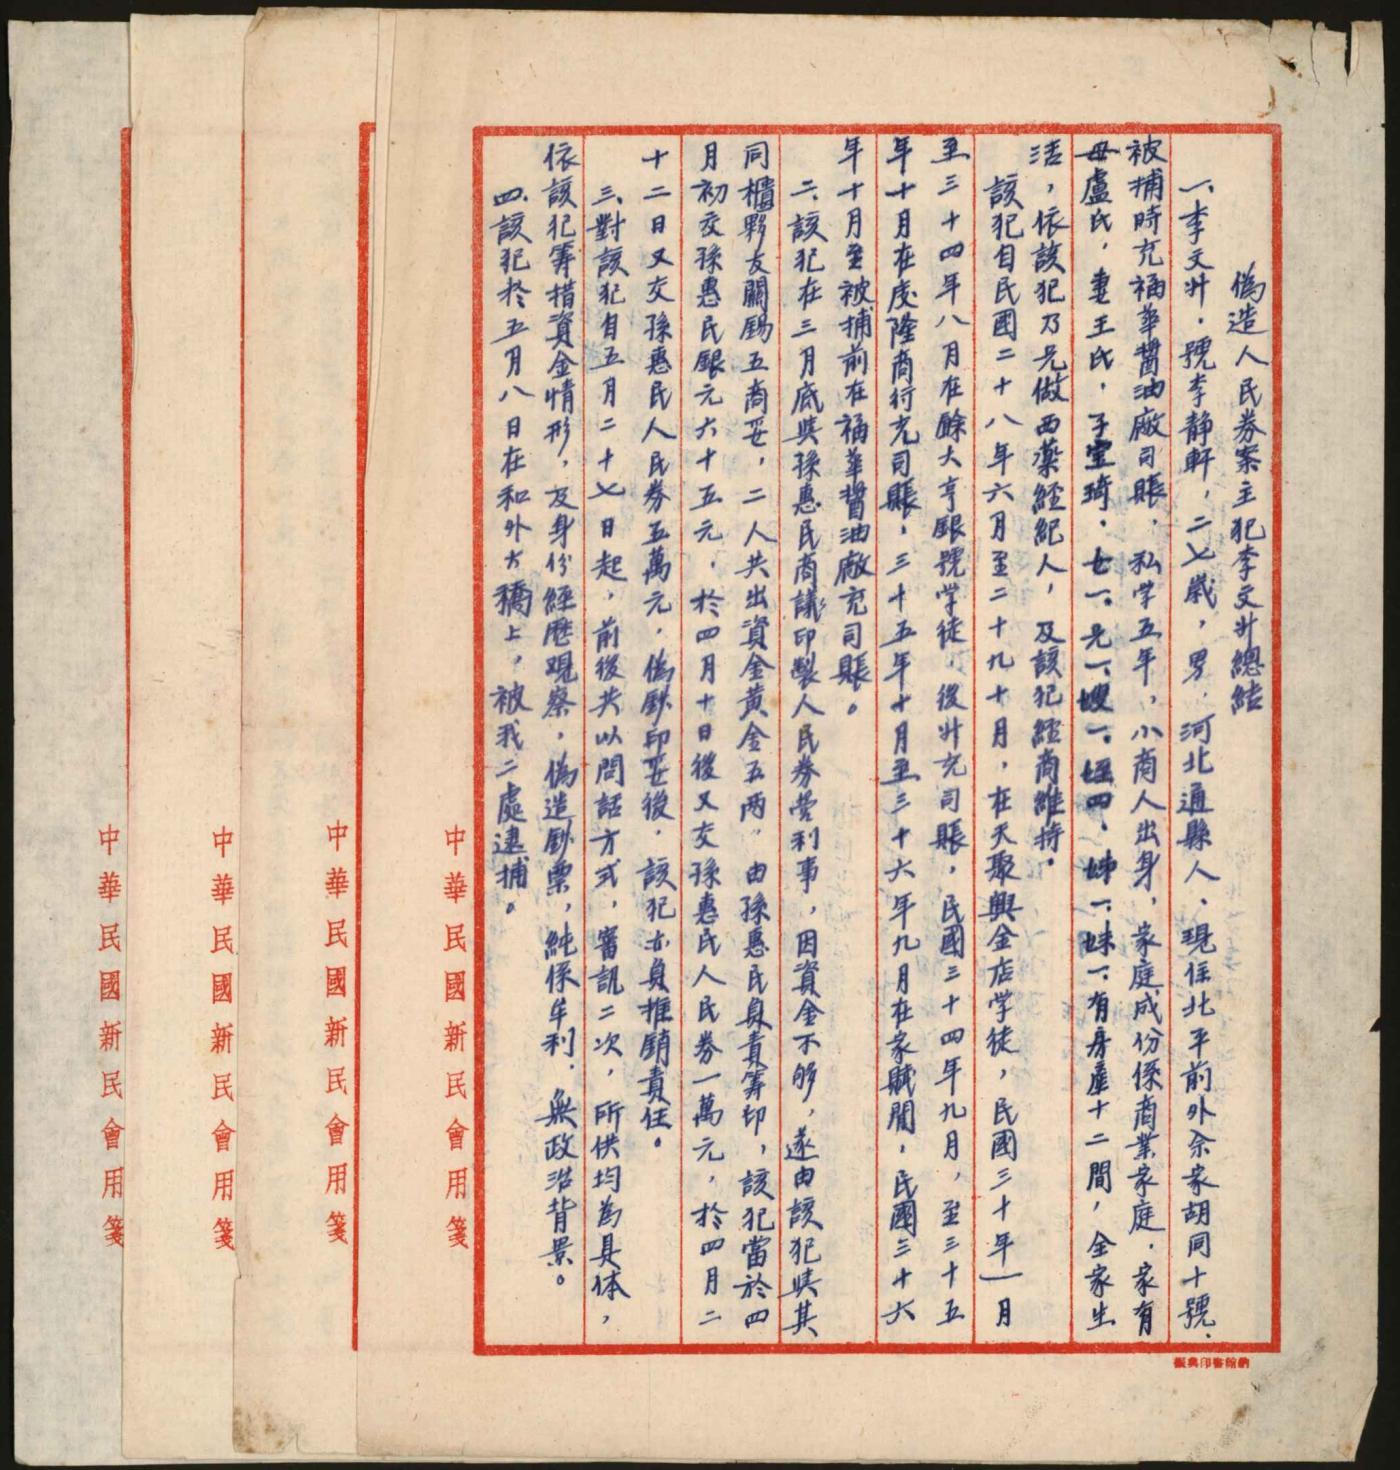 偽造人民券案主犯李文升總結
一、李文升,號李静軒,二七歲,男,河北通縣人,現住北平前外余家胡同十號,
被捕時充福華醬油廠司賬,私学五年,小商人出身,家庭成份係商業家庭,家有
母盧氏,妻王氏,子宝琦,女一,兄一,嫂一,侄四,姊一,妹一,有房產十二間,全家生
活,依該犯乃兄做西藥經紀人,及該犯經商維持。
該犯自民國二十八年六月至二十九十月,在天聚興金店学徒,民國三十年一月
至三十四年八月在餘大亨銀號学徒,後升充司賬,民國三十四年九月,至三十五
年十月在庆隆商行充司賬,三十五年十月至三十六年九月在家賦閒,民國三十六
年十月至被捕前在福華醬油廠充司賬。
二、該犯在三月底與孫惠民商議印製人民券營利事,因資金不够,遂由該犯與其
同櫃夥友關錫五商妥,二人共出資金黄金五两,由孫惠民負責筹印,該犯當於四
月初交孫惠民銀元六十五元,於四月十日後又交孫惠民人民券一萬元,於四月二
十二日又交孫惠民人民券五萬元,偽鈔印妥後,該犯亦負推銷責任。
三、對該犯自五月二十七日起,前後共以問話方式,審訊二次,所供均為具体,
依該犯筹措資金情形,及身份經歷現察,偽造鈔票,純係牟利,無政治背景。
四、該犯於五月八日在和外大橋上,被我二處逮捕。
中華民國新民會用箋
中華民國新民會用箋
中華民國新民會用箋
中華民國新民會用箋